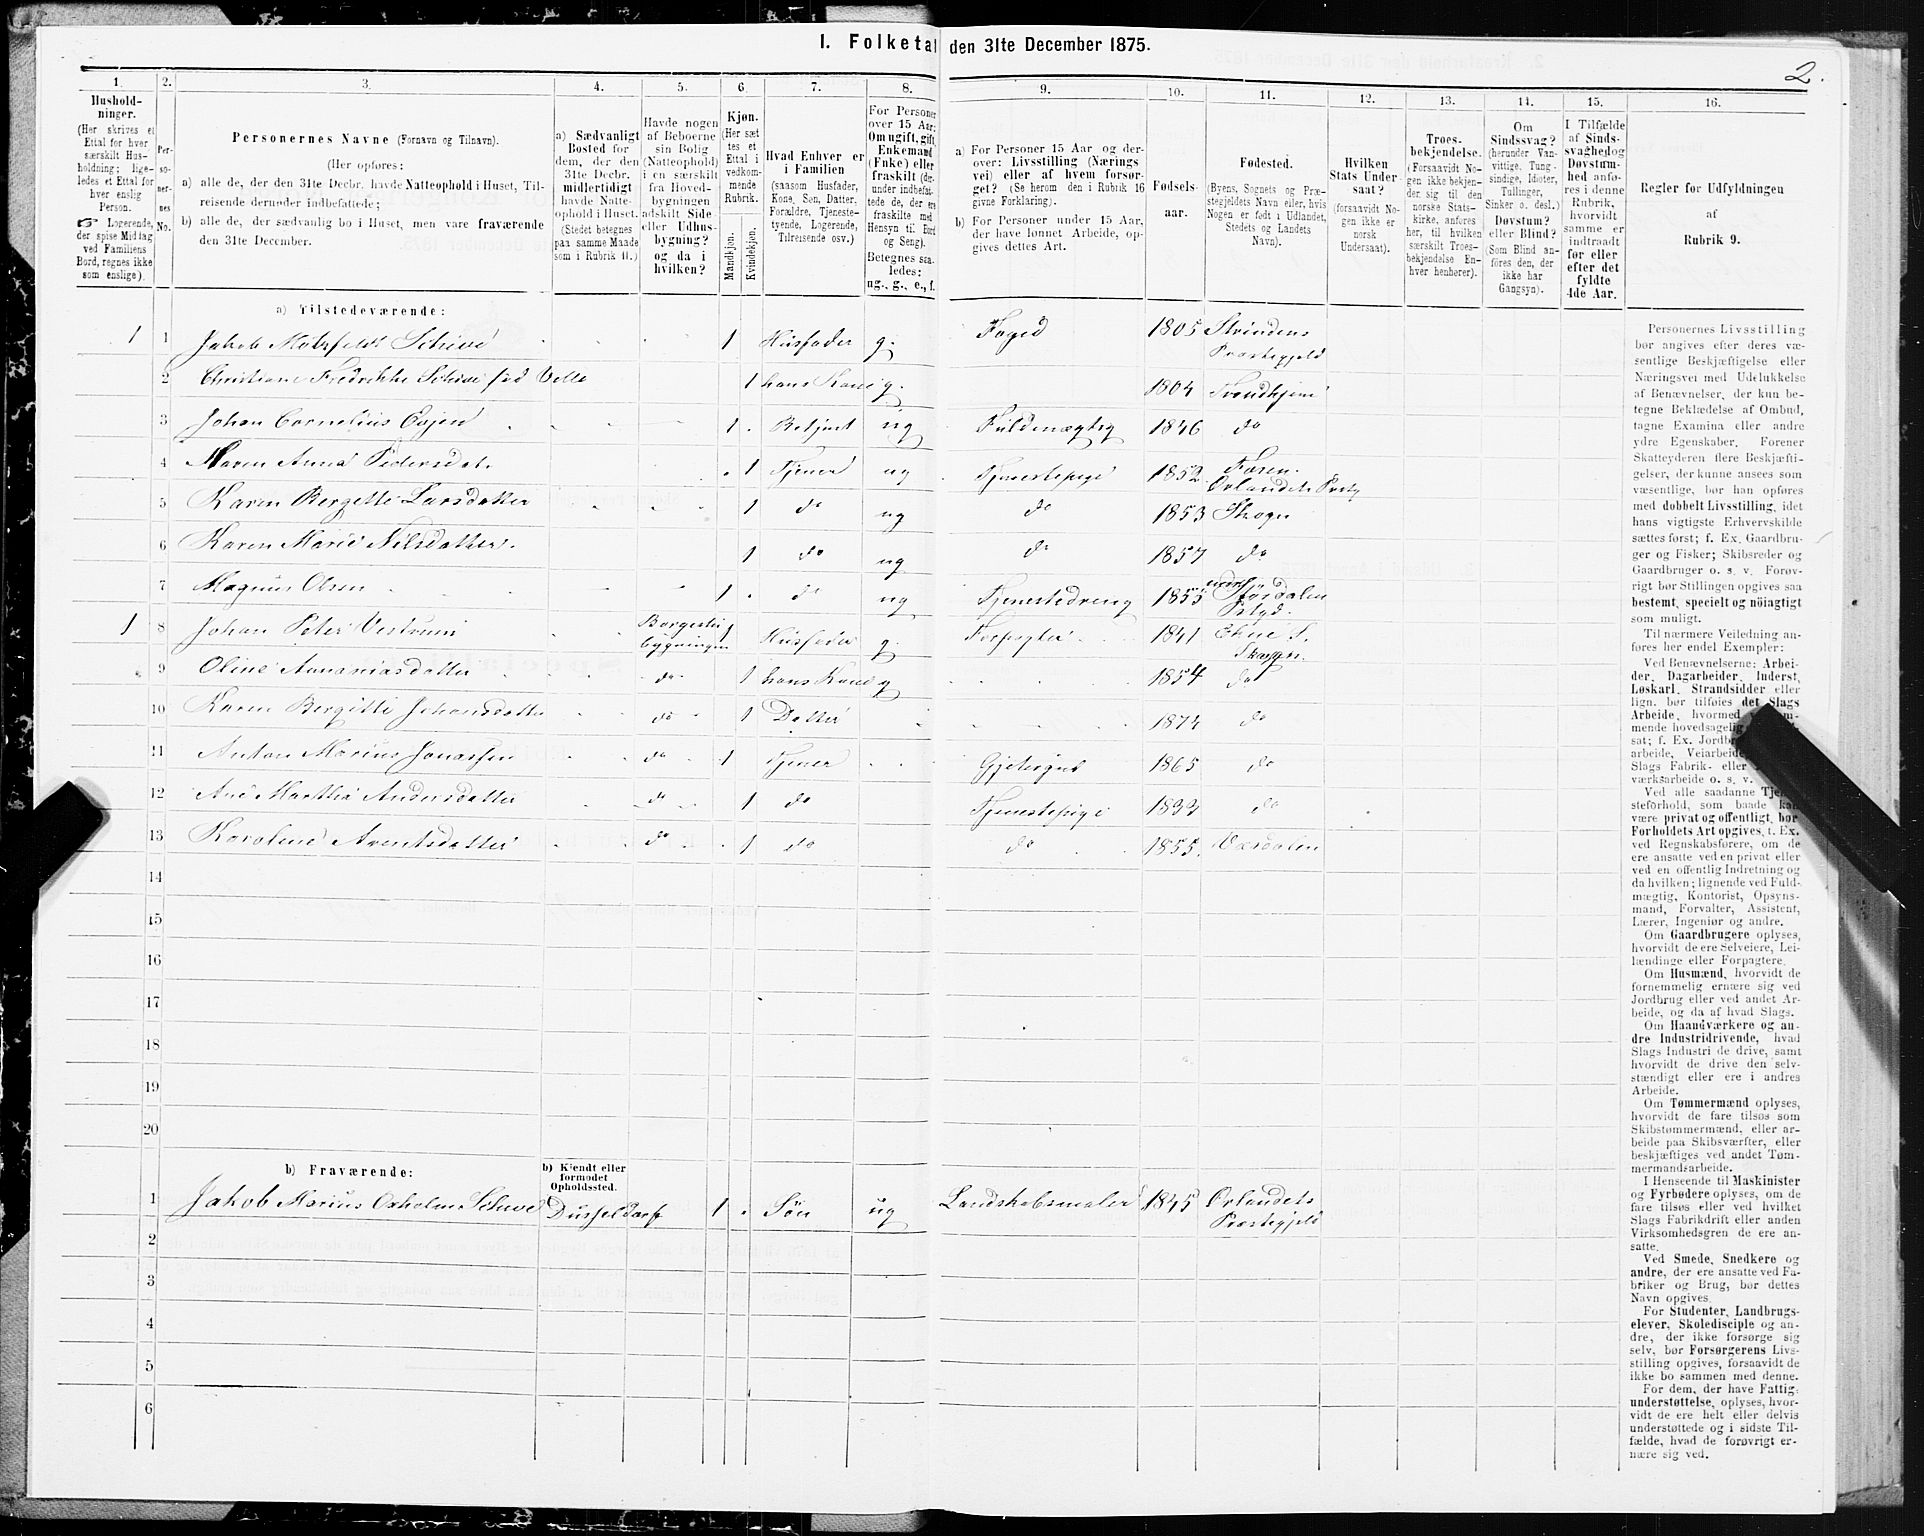 I. Folketal den 31te December 1875.
2.
1. 2. 3. 4. 5. 6. 7. 8. 9. 10. 11. 12. 13. 14. 15. 16.
Hushold-
ninger.
(Her skrives et
Ettal for hver
særskilt Hus-
holdning; lige-
ledes et Ettal for
hver enslig
Person.
☞ Logerende,
der spise Middag
ved Familiens
Bord, regnes ikke
som enslige).
Per-
so-
ner-
nes
No.
Personernes Navne (Fornavn og Tilnavn).
(Her opføres:
a) alle de, der den 31te Decbr. havde Natteophold i Huset, Til-
reisende derunder indbefattede;
b) alle de, der sædvanlig bo i Huset, men vare fraværende
den 31te December.
a) Sædvanligt
Bosted for
dem, der den
31te Decbr.
midlertidigt
havde Natte-
ophold i Huset.
(Stedet betegnes
paa samme Maade
som i Rubrik 11.)
Havde nogen
af Beboerne
sin Bolig
(Natteophold)
i en særskilt
fra Hoved-
bygningen
adskilt Side-
eller Udhus-
bygning?
og da i
hvilken?
Kjøn.
(Her sæt
tes et
Ettal i
vedkom-
mende
Rubrik.
Mandkjøn.
Kvindekjøn.
Hvad Enhver er
i Familien
(saasom Husfader,
Kone, Søn, Datter,
Forældre, Tjeneste-
tyende, Logerende,
Tilreisende osv.)
For Personer
over 15 Aar:
Om ugift, gift,
Enkemand
(Enke) eller
fraskilt (der-
under indbefat-
tede de, der ere
fraskilte med
Hensyn til Bord
og Seng).
Betegnes saa-
ledes:
ug., g., e., f.
a) For Personer 15 Aar og der-
over: Livsstilling (Nærings
vei) eller af hvem forsør-
get? (Se herom den i Rubrik 16
givne Forklaring).
b) For Personer under 15 Aar,
der have lønnet Arbeide, op-
gives dettes Art.
Fødsels-
aar.
Fødested.
(Byens, Sognets og Præ-
stegjeldets Navn eller, hvis
Nogen er født i Udlandet,
Stedets og Landets
Navn).
Hvilken
Stats Under
saat?
(forsaavidt No-
gen ikke er
norsk
Undersaat).
Troes-
bekjendelse.
(Forsaavidt No-
gen ikke bekjen-
der sig til den
norske Stats-
kirke, anføres
her, til hvilken
særskilt Troes-
bekjendelse En-
hver henhører).
Om
Sindssvag?
(herunder Van-
vittige, Tung-
sindige, Idioter,
Tullinger,
Sinker o. desl.)
Døvstum?
eller Blind?
(Som Blind an-
føres den, der
ikke har
Gangsyn).
I Tilfælde
af Sinds-
svaghed og
Døvstum-
hed anfø-
res i denne
Rubrik,
hvorvidt
samme er
indtraadt
før eller
efter det
fyldte
4de Aar.
Regler for Udfyldningen
af
Rubrik 9.
a) Tilstedeværende:
1 1 Jakob Schive 1 Husfader g. Foged 1805 Strindens
Præstegjeld
2 Christiane Fredrikke Schive 1 hans Kone g. 1804 Trondhjem
3 Johan Cornelius 1 Betjent ug Fuldmægtig 1846 do
4 Maren Anna Pedersdat. 1 Tjener ug Tjenestepige 1852
Ørlandets
5 Karen Bergette Larsdatter 1 do ug do 1853 Skogn
6 Karen Marie Nilsdatter. 1 do ug do 1857 do
7 Magnus Olsen 1 do ug Tjenestedreng 1855 Stjørdalen
1 8 Johan Peter Vestrum Borgestue
bygningen 1 Husfader g. Forpagter 1841 Ekne S.
Skogn.
9 Oline Ananiasdatter do 1 hans Kone g 1854 do
10 Karen Bergitte Johansdatter do 1 Datter 1874 do
11 Anton Marius Jonassen do 1 Tjener Gjetergut 1865 do
12 Ane Marthea Andersdatter do 1 do Tjenestepige do
13 Karoline Arentsdatter do 1 do do 1855. Værdalen
14
15
16
17
18
19
20
b) Fraværende:
b) Kjendt eller
formodet
Opholdssted.
1 Jakob Marius Oxholm Schive Düsseldorf 1 Søn ug Landskabsmaler 1845 Ørlandets
Præstegjeld
2
3
4
5
6
Personernes Livsstilling
bør angives efter deres væ-
sentlige Beskjæftigelse eller
Næringsvei med Udelukkelse
af Benævnelser, der kun be-
tegne Beklædelse af Ombud,
tagne Examina eller andre
ydre Egenskaber. Forener
Skatteyderen flere Beskjæfti-
gelser, der kunne ansees som
væsentlige, bør han opføres
med dobbelt Livsstilling, idet
hans vigtigste Erhvervskilde
sættes først; f. Ex. Gaardbru-
ger og Fisker; Skibsreder og
Gaardbruger o. s. v. Forøv-
rigt bør Stillingen opgives saa
bestemt, specielt og nöiagtigt
som muligt.
Til nærmere Veiledning an-
føres her endel Exempler:
Ved Benævnelserne: Arbei-
der, Dagarbeider, Inderst,
Løskarl, Strandsidder eller
lign. bør tilføies det Slags
Arbeide, hvormed
mende hovedsagelig
sat; f. Ex.
arbeide, Veiarbeide
Slags Fabrik- eller
værksarbeide o. s. v.
Ved alle saadanne Tjen-
steforhold, som baade kan
være privat og offentligt, bør
Forholdets Art opgives, t. Ex.
ved Regnskabsførere, om de
ere ansatte ved en privat eller
ved en offentlig Indretning og
da hvilken; lignende ved Fuld-
mægtig, Kontorist, Opsyns-
mand, Forvalter, Assistent,
Lærer, Ingeniør og andre.
Om Gaardbrugere oplyses,
hvorvidt de ere Selveiere, Lei-
lændinge eller Forpagtere.
Om Husmænd, hvorvidt de
fornemmelig ernære sig ved
Jordbrug eller ved andet Ar-
beide, og da af hvad Slags.
Om Haandværkere og an-
dre Industridrivende, hvad
Slags Industri de drive, samt
hvorvidt de drive den selv-
stændigt eller ere i andres
Arbeide.
Om Tømmermænd oplyses,
hvorvidt de fare tilsøs som
Skibstømmermænd, eller ar-
beide paa Skibsværfter, eller
beskjæftiges ved andet Tøm-
mermandsarbeide.
I Henseende til Maskinister
og Fyrbødere oplyses, om de
fare tilsøs eller ved hvilket
Slags Fabrikdrift eller anden
Virksomhedsgren de ere an-
satte.
Ved Smede, Snedkere og
andre, der ere ansatte ved Fa-
briker og Brug, bør dettes
Navn opgives.
For Studenter, Landbrugs-
elever, Skoledisciple og an-
dre, der ikke forsørge sig
selv, bør Forsørgerens Livs-
stilling opgives, forsaavidt de
ikke bo sammen med denne.
For dem, der have Fattig-
understøttelse, oplyses, hvor-
vidt de ere helt eller delvis
understøttede og i sidste Til-
fælde, hvad de forøvrigt er-
nære sig ved.